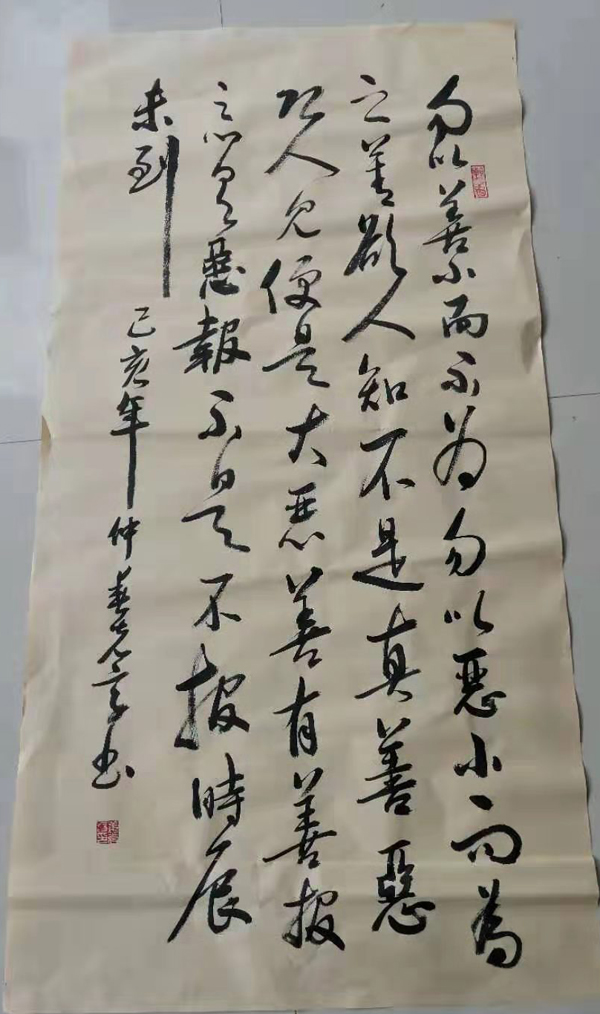 勿以善小而不为勿以恶小而為
之善欲人知不是真善惡
恐人见便是大恶善有善报
恶有惡報不是不报時辰
未到
己亥年仲春 书